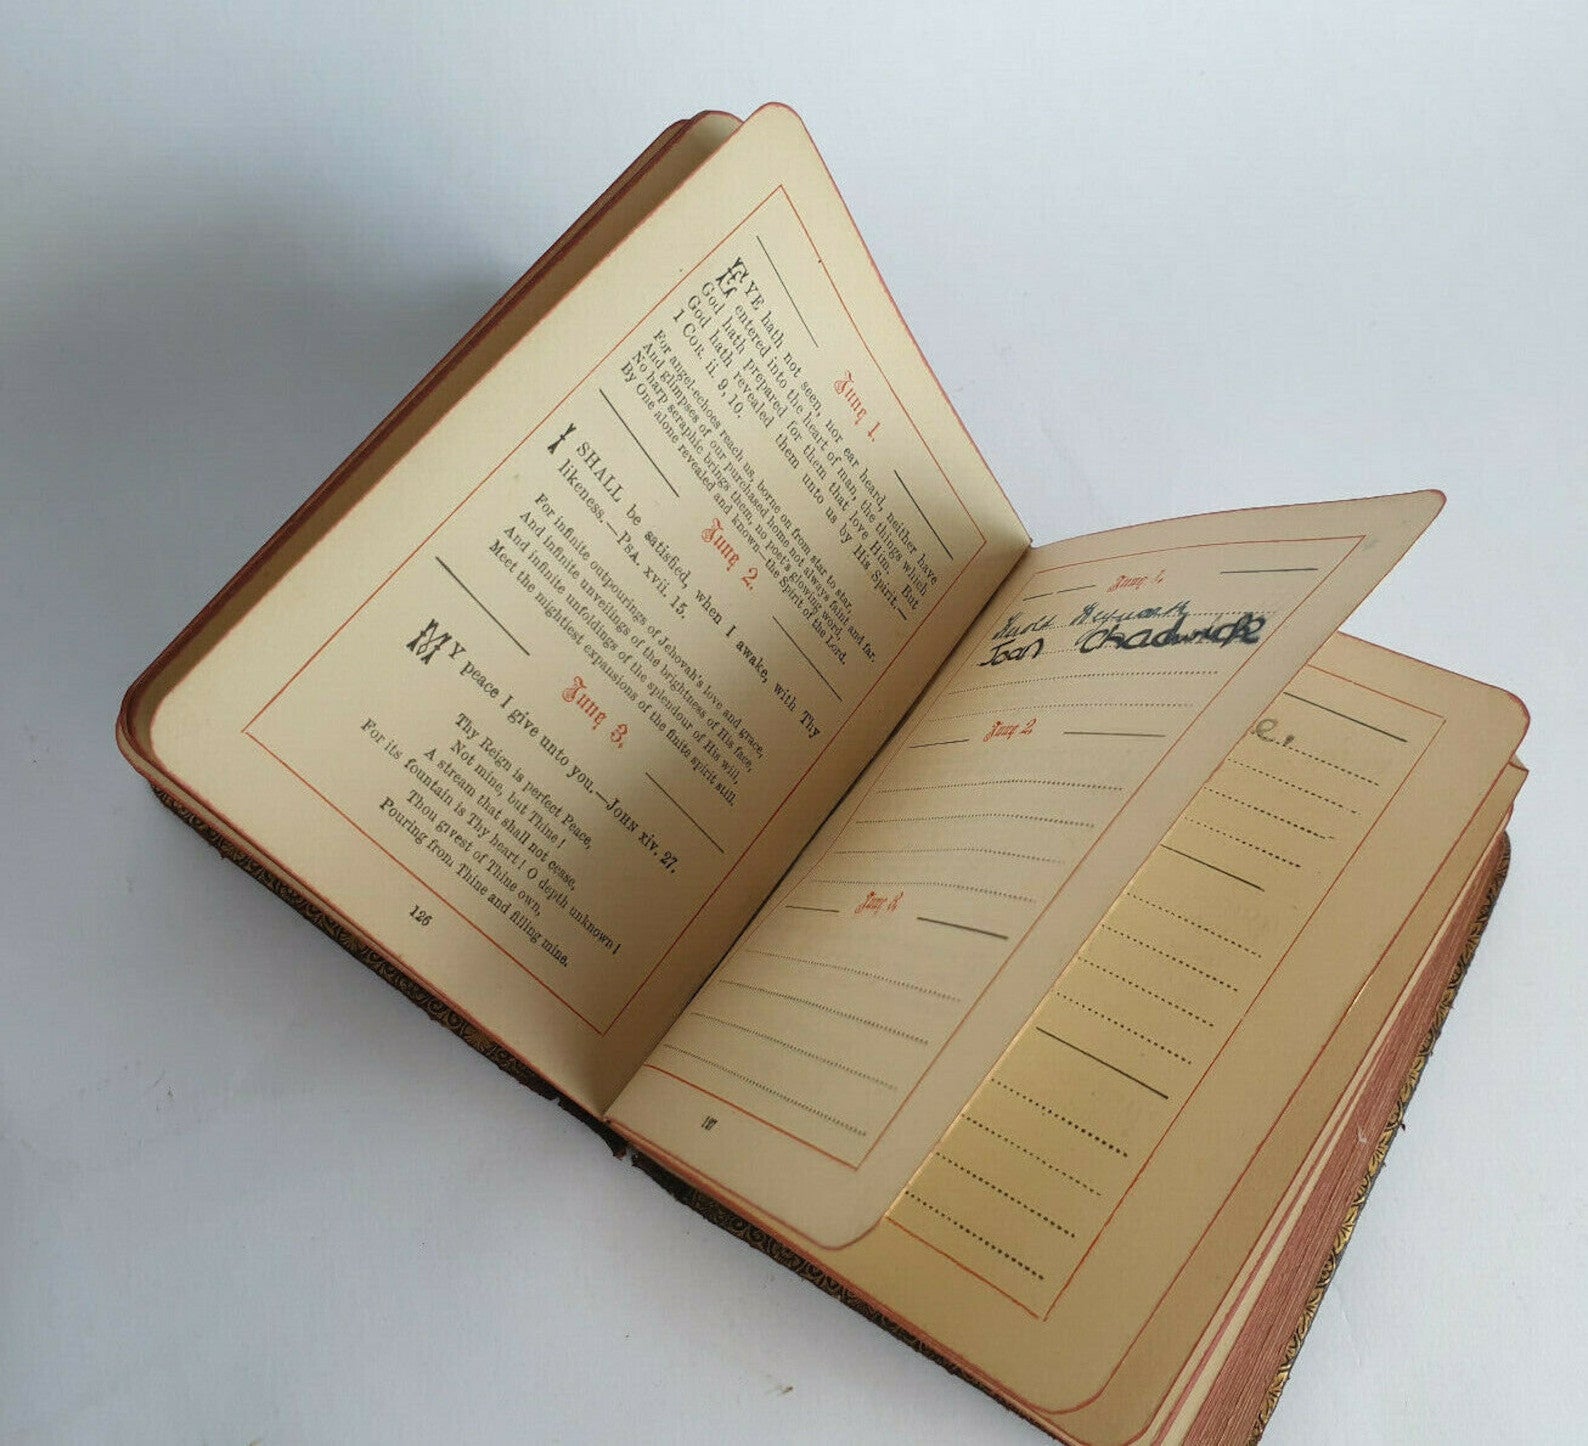 June 1.
EYE hath not seen, nor ear heard, neither have
entered into the heart of man, the things which
God hath prepared for them that love Him. But
God hath revealed them unto us by His Spirit.—
1 COR. ii. 9, 10.
For angel-echoes reach us, borne on from star to star,
And glimpses of our purchased home not always faint and far.
No harp seraphic brings them, no poet's glowing word,
By One alone revealed and known—the Spirit of the Lord.
June 2.
I SHALL be satisfied, when I awake, with Thy
likeness.—PSA. xvii. 15.
For infinite outpourings of Jehovah's love and grace,
And infinite unveilings of the brightness of His face,
And infinite unfoldings of the splendour of His will,
Meet the mightiest expansions of the finite spirit still.
June 3.
MY peace I give unto you.—JOHN xiv. 27.
Thy Reign is perfect Peace,
Not mine, but Thine!
A stream that shall not cease,
For its fountain is Thy heart! O depth unknown!
Thou givest of Thine own,
Pouring from Thine and filling mine.
126
June 1.
Joan Chadwick
June 2
June 3
127
e.